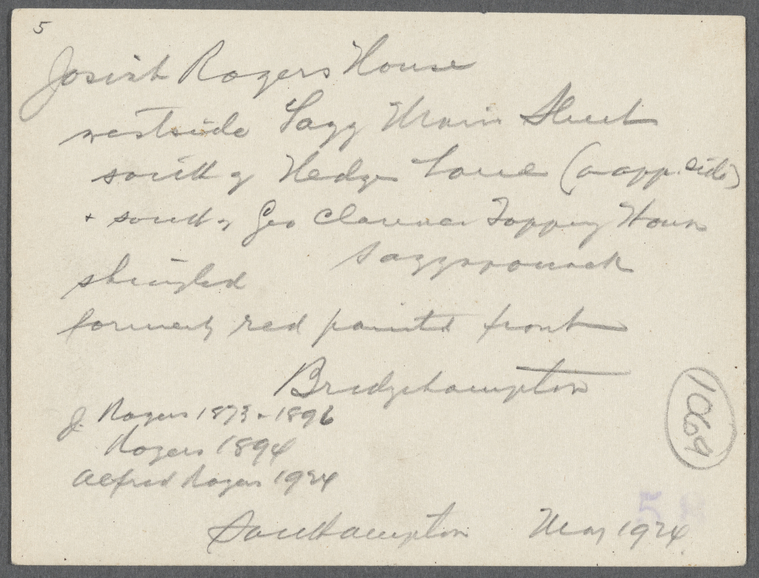 5
Josiah Rogers House
westside Sagg Main Street
south of Hedge Lane (on opp. side)
+ south of Geo Clarence Topping House
Saggaponack
shingled
formerly red painted front
Bridgehampton
1069
J. Rogers 1873-1896
Rogers 1894
Alfred Rogers 1924
Southampton May 1924
5